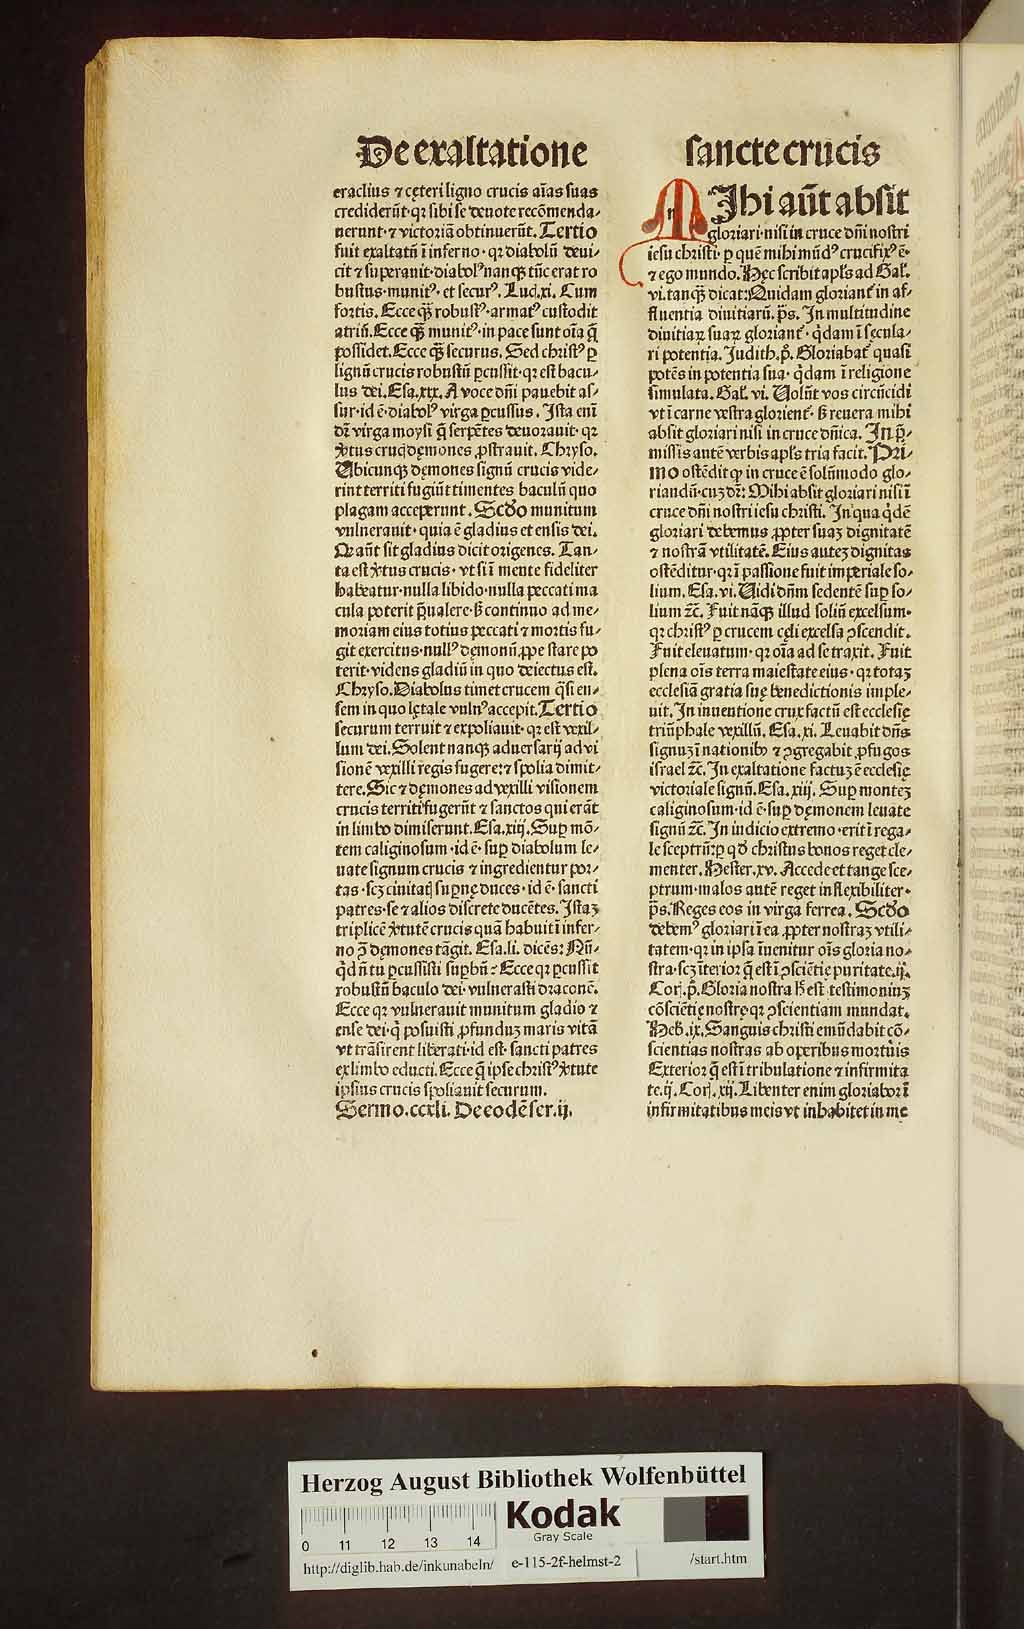 De exaltatione
sancte crucis
eraclius ⁊ cęteri ligno crucis aı̄as suas
crediderūt· qꝛ sibi se deuote recōmenda-
uerunt· ⁊ victoriā obtinuerūt. Tertio
fuit exaltatū ī inferno· qꝛ diabolū deui-
cit ⁊ superauit· diabolꝰ nanqꝫ tūc erat ro
bustus· munitꝰ· et securꝰ. Luc̄. xi. Cum
fortis. Ecce qꝫ robustꝰ· armatꝰ custodit
atriū. Ecce qꝫ munitꝰ· in pace sunt oīa q̄
possidet. Ecce qꝫ securus. Sed christꝰ ꝑ
lignū crucis robustū ꝑcussit· qꝛ est bacu-
lus dei. Esa. xxx. A voce dn̄i pauebit as-
sur· id ē· diabolꝰ virga ꝑcussus. Ista enī
dr̄ virga moysi q̄ serpētes deuorauit· qꝛ
ꝟtus cruc̄ dęmones ꝓstrauit. Chryso.
Ubicunqꝫ dęmones signū crucis vide-
rint territi fugiūt timentes baculū quo
plagam acceperunt. Scd̄o munitum
vulnerauit· quia ē gladius et ensis dei.
Qꝛ aūt sit gladius dicit origenes. Tan-
ta est ꝟtus crucis· vt si ī mente fideliter
habeatur· nulla libido· nulla peccati ma
cula poterit p̄ualere· sꝫ continuo ad me-
moriam eius totius peccati ⁊ mortis fu-
git exercitus· nullꝰ dęmonū ꝓpe stare po
terit· videns gladiū in quo deiectus est.
Chryso. Diabolus timet crucem q̄si en-
sem in quo lętale vulnꝰ accepit. Tertio
securum terruit ⁊ expoliauit· qꝛ est vexil-
lum dei. Solent nanqꝫ aduersarij ad vi
sionē vexilli regis fugere: ⁊ spolia dimit-
tere. Sic ⁊ dęmones ad vexilli visionem
crucis territi fugerūt ⁊ sanctos qui erāt
in limbo dimiserunt. Esa. xiij. Suꝑ mō-
tem caliginosum· id ē· suꝑ diabolum le-
uate signum crucis ⁊ ingredientur por-
tas· scꝫ ciuitat̄ suꝑnę duces· id ē· sancti
patres· se ⁊ alios discrete ducētes. Istaꝫ
triplicē ꝟtutē crucis quā habuit ī infer-
no ↄ̄ dęmones tāgit. Esa. li. dicēs: Nū-
q̇d n̄ tu ꝑcussisti suꝑbū? Ecce qꝛ ꝑcussit
robustū baculo dei· vulnerasti draconē.
Ecce qꝛ vulnerauit munitum gladio ⁊
ense dei· q̇ posuisti ꝓfunduꝫ maris vitā
vt trāsirent liberati· id est· sancti patres
ex limbo educti. Ecce q̄ ipse christꝰ ꝟtute
ipsius crucis spoliauit securum.
Sermo. ccxli. De eodē ser. ij.
MIhi aūt absit
gloriari· nisi in cruce dn̄i nostri
iesu christi· ꝑ quē mihi mūdꝰ crucifixꝰ ē·
⁊ ego mundo. Hęc scribit apl̄s ad Gal̄.
vi. tanqꝫ dicat: Quidam gloriant̄ in af-
fluentia diuitiarū. p̄s. In multitudine
diuitiaꝝ suaꝝ gloriant̄· q̇dam ī sęcula-
ri potentia. Judith. p̄. Gloriabat̄ quasi
potēs in potentia sua· q̇dam ī religione
simulata. Gal̄. vi. Uolūt vos circūcidi
vt ī carne vestra glorient̄· sꝫ reuera mihi
absit gloriari nisi in cruce dn̄ica. In p̄-
missis autē verbis apl̄s tria facit. Pri-
mo ostēdit qꝙ in cruce ē solūmodo glo-
riandū· cuꝫ dr̄: Mihi absit gloriari nisi ī
cruce dn̄i nostri iesu christi. In qua q̇dē
gloriari debemus ꝓpter suaꝫ dignitatē
⁊ nostrā vtilitatē. Eius auteꝫ dignitas
ostēditur· qꝛ ī passione fuit imperiale so-
lium. Esa. vi. Uidi dn̄m sedentē suꝑ so-
lium ⁊c̄. Fuit nāqꝫ illud soliū excelsum·
qꝛ christꝰ ꝑ crucem cęli excelsa ↄscendit.
Fuit eleuatum· qꝛ oīa ad se traxit. Fuit
plena oīs terra maiestate eius· qꝛ totaꝫ
ecclesiā gratia suę benedictionis imple-
uit. In inuentione crux factū est ecclesię
triūphale vexillū. Esa. xi. Leuabit dn̄s
signuꝫ ī nationibꝰ ⁊ ↄgregabit ꝓfugos
israel ⁊c̄. In exaltatione factuꝫ ē ecclesię
victoriale signū. Esa. xiij. Suꝑ monteꝫ
caliginosum· id ē· suꝑ dęmonem leuate
signū ⁊c̄. In iudicio extremo· erit ī rega-
le sceptrū: ꝑ qd̄ christus bonos reget cle-
menter. Hester. xv. Accede et tange sce-
ptrum· malos autē reget inflexibiliter·
p̄s. Reges eos in virga ferrea. Scd̄o
debemꝰ gloriari ī ea ꝓpter nostraꝫ vtili-
tatem· qꝛ in ipsa īuenitur oīs gloria no-
stra· scꝫ īterior q̄ est ī ↄscīetię puritate. ij.
Coꝝ. p̄. Gloria nostra hꝫ est testimoniuꝫ
cōscīetię nostrę qꝛ ↄscientiam mundat.
Heb̄. ix. Sanguis christi emūdabit cō-
scientias nostras ab operibus mortuis
Exterior q̄ est ī tribulatione ⁊ infirmita
te. ij. Coꝝ. xij. Libenter enim gloriabor ī
infirmitatibus meis vt inhabitet in me
Herzog August Bibliothek Wolfenbüttel
Kodak
Gray Scale
0 11 12 13 14
http://diglib.hab.de/inkunabeln/ e-115-2f-helmst-2 /start.htm